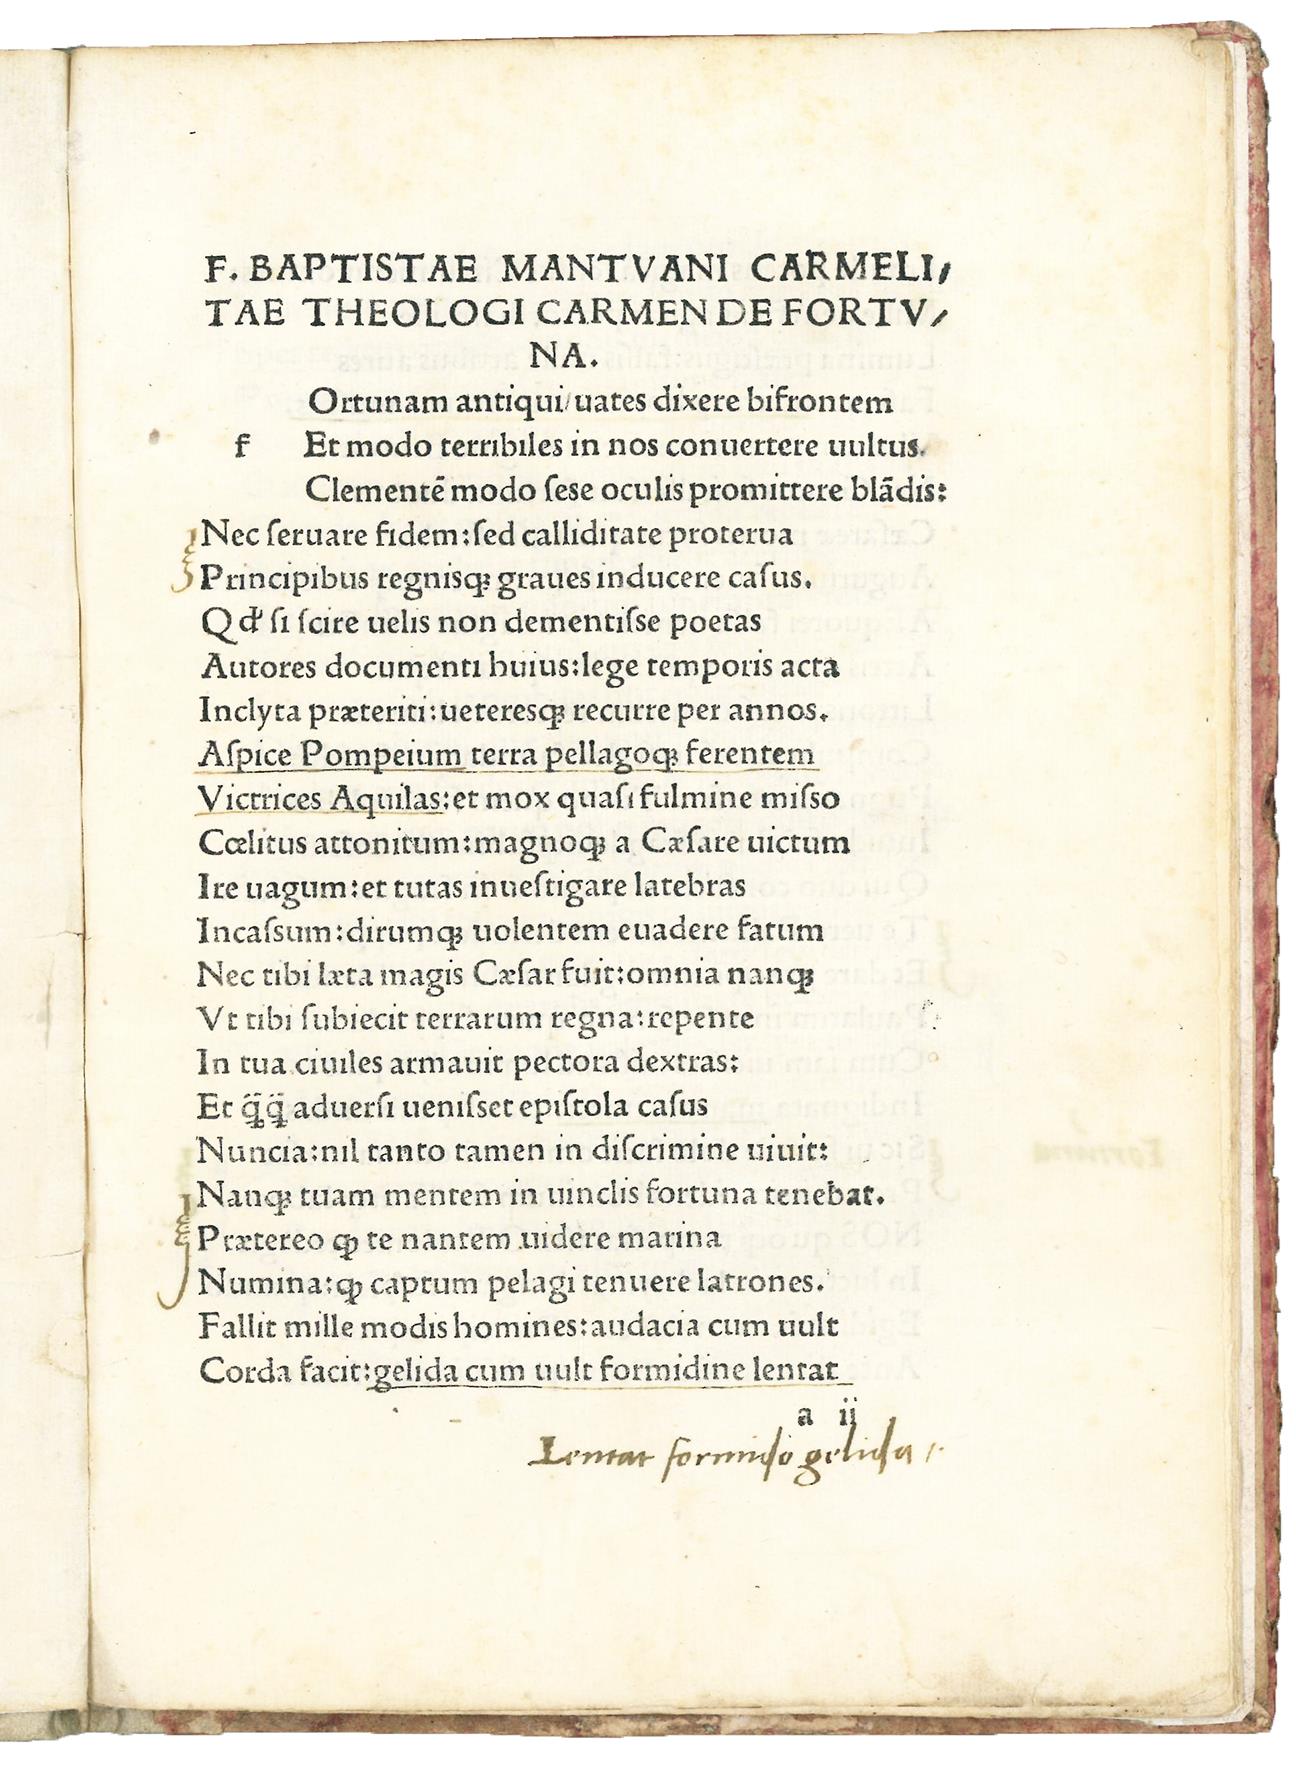 F. BAPTISTAE MANTVANI CARMELI/
TAE THEOLOGI CARMEN DE FORTV/
NA.
Ortunam antiqui/uates dixere bifrontem
f Et modo terribiles in nos conuertere uultus.
Clementē modo ſeſe oculis promittere blādis:
Nec ſeruare fidem:ſed calliditate proterua
Principibus regniſqꝫ graues inducere caſus.
Qđ ſi ſcire uelis non dementiſſe poetas
Autores documenti huius:lege temporis acta
Inclyta præteriti:uetereſqꝫ recurre per annos.
Aſpice Pompeium terra pellagoqꝫ ferentem
Victrices Aquilas:et mox quaſi fulmine miſſo
Cœlitus attonitum:magnoqꝫ a Cæſare uictum
Ire uagum:et tutas inueſtigare latebras
Incaſſum:dirumqꝫ uolentem euadere fatum
Nec tibi læta magis Cæſar fuit:omnia nanqꝫ
Vt tibi ſubiecit terrarum regna:repente
In tua ciuiles armauit pectora dextras:
Et q̃q̃ aduerſi ueniſſet epiſtola caſus
Nuncia:nil tanto tamen in diſcrimine uiuit:
Nanqꝫ tuam mentem in uinclis fortuna tenebat.
Prætereo qꝫ te nantem uidere marina
Numina:qꝫ captum pelagi tenuere latrones.
Fallit mille modis homines:audacia cum uult
Corda facit:gelida cum uult formidine lentat
a ii
Lentat formido gelida